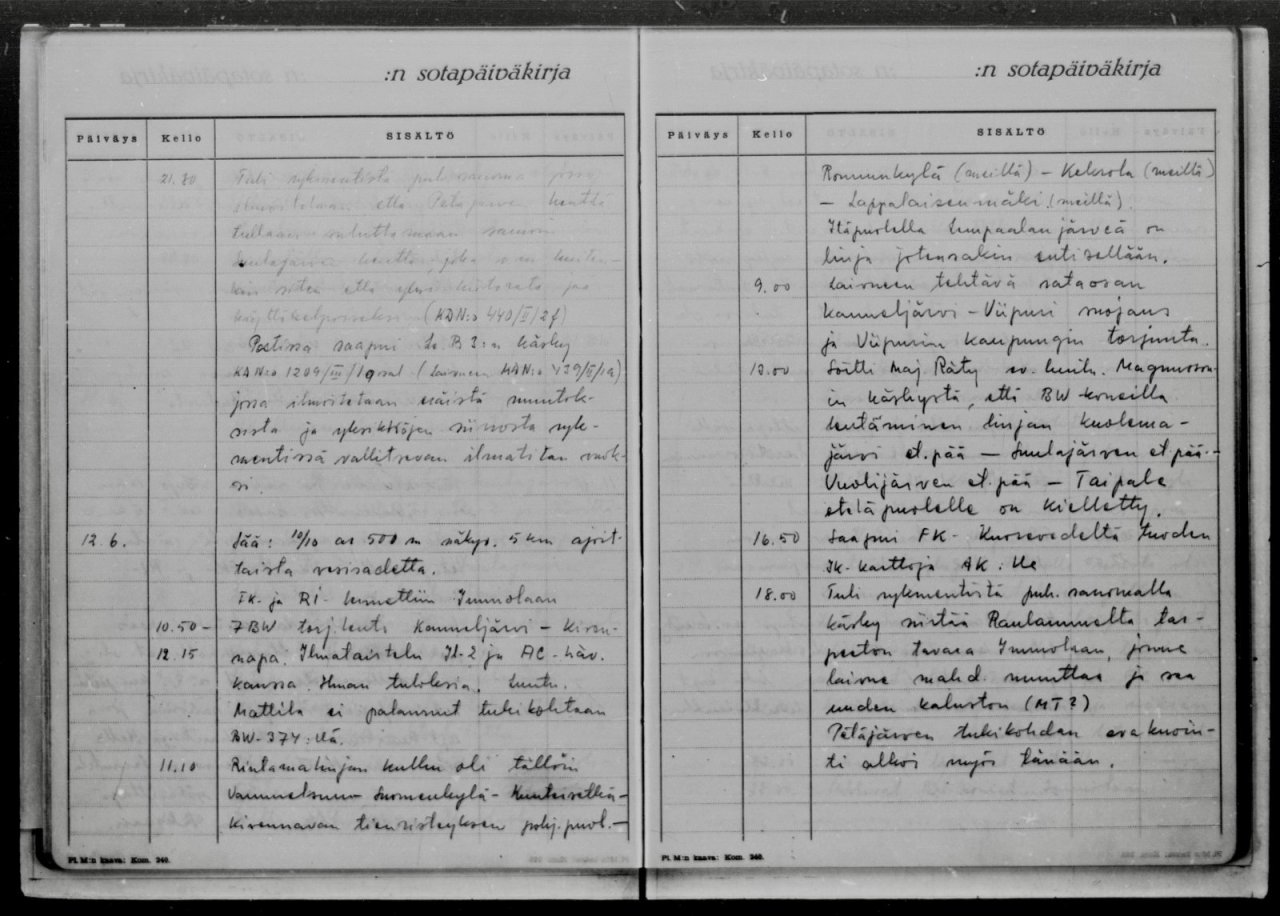 :n sotapäiväkirja
Päiväys Kello SISÄLTÖ
21.30 Tuli rykmentistä puh.sanoma jossa
ilmoitetaan että Petäjärven kenttä
tullaan
kenttä, joka on kuiten-
kin siten että yksi kiitorata jää
käyttökelpoiseksi (KDN:o 440/II/2f)
Postissa saapui Le.R 3:n käsky
KAN:o 1209/III/19 sal (Laivueen KAN:o 439/II/1a)
jossa ilmoitetaan eräistä muutok-
sista ja yksikköjen siirrosta ryk-
mentissä vallitsevan ilmatilan vuok-
si.
12.6. Sää: 10/10 as 500 m näkyv. 5 km ajoit-
taista vesisadetta.
TK- ja RI- kunnettiin Immolaan
10.50- 7 BW torj.lento Kanneljärvi - Kiven-
12.15 napa. Ilmataistelu Il-2 ja AC-häv.
kanssa. Ilman tuloksia. Luutn.
Mattila ei palannut tukikohtaan
BW-374:llä.
11.10 Rintamalinjan kulku oli tällöin
Vammelsuu, Suomenkylä - Kuuterselkä -
Kivennavan tienristeyksen pohj.puol. -
Pl. M:n kaava: Kom. 240.
:n sotapäiväkirja
Päiväys Kello SISÄLTÖ
Rommunkylä (meillä) - Kekrola (meillä)
- Lappalaisenmäki (meillä).
Itäpuolella Lempaalanjärveä on
linja jotensakin entisellään.
9.00 Laivueen tehtävä rataosan
Kanneljärvi - Viipuri suojaus
ja Viipurin kaupungin torjunta.
13.00 Soitti Maj. Räty ev. luutn. Magnusson-
in käskystä, että BW-koneilla
lentäminen linjan Kuolema-
järvi et.pää - Suulajärven et.pää -
Vuotjärven et.pää - Taipale
eteläpuolelle on kielletty.
16.50 Saapui FK- Kuorevedeltä tuoden
IK-karttoja AK:lle
18.00 Tuli rykmentistä puh. sanomalla
käsky siirtää Rautammelta tar-
peeton tavara Immolaan, jonne
laivue mahd. muuttaa ja saa
uuden kaluston (MT?)
Petäjärven tukikohdan evakuoin-
ti alkoi myös tänään.
Pl. M:n kaava: Kom. 240.